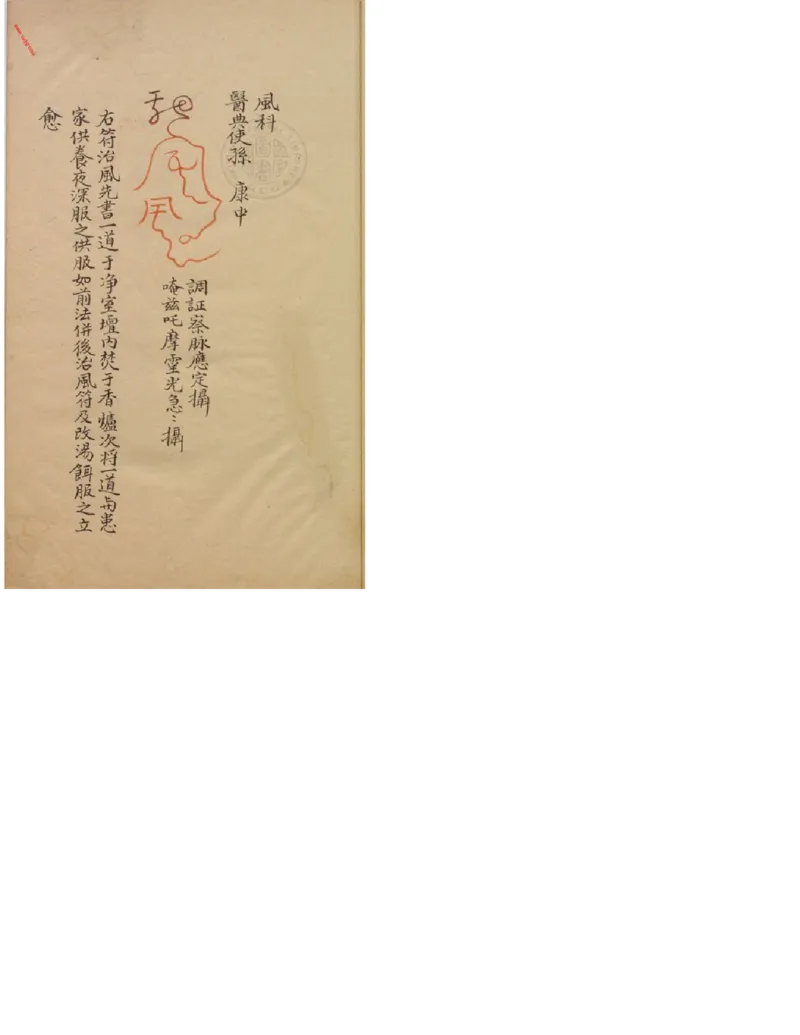 風科
醫典使孫 康中
調証察脉應定攝
唵茲吒摩霊光急〻攝
右符治風先書一道于净室壇內焚于香爐次将一道与患
家供養夜深服之供服如前法併後治風符及改湯餌服之立
愈